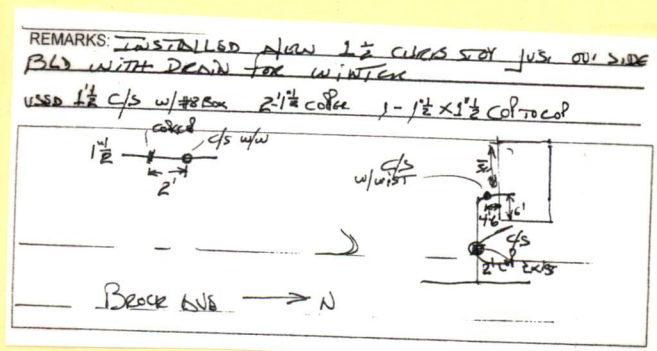 REMARKS: INSTALLED NEW 1½ CURB STOP JUST OUTSIDE
BLD WITH DRAIN FOR WINTER
USED 1"½ C/S W/ #8 BOX 2-1"½ COPPER 1-1"½ X 1"½ COP TO COP
COPPER
C/S W/W
1"½
2'
C/S
W/WIST
4'6
6'
C/S
2'
BROCK AVE → N